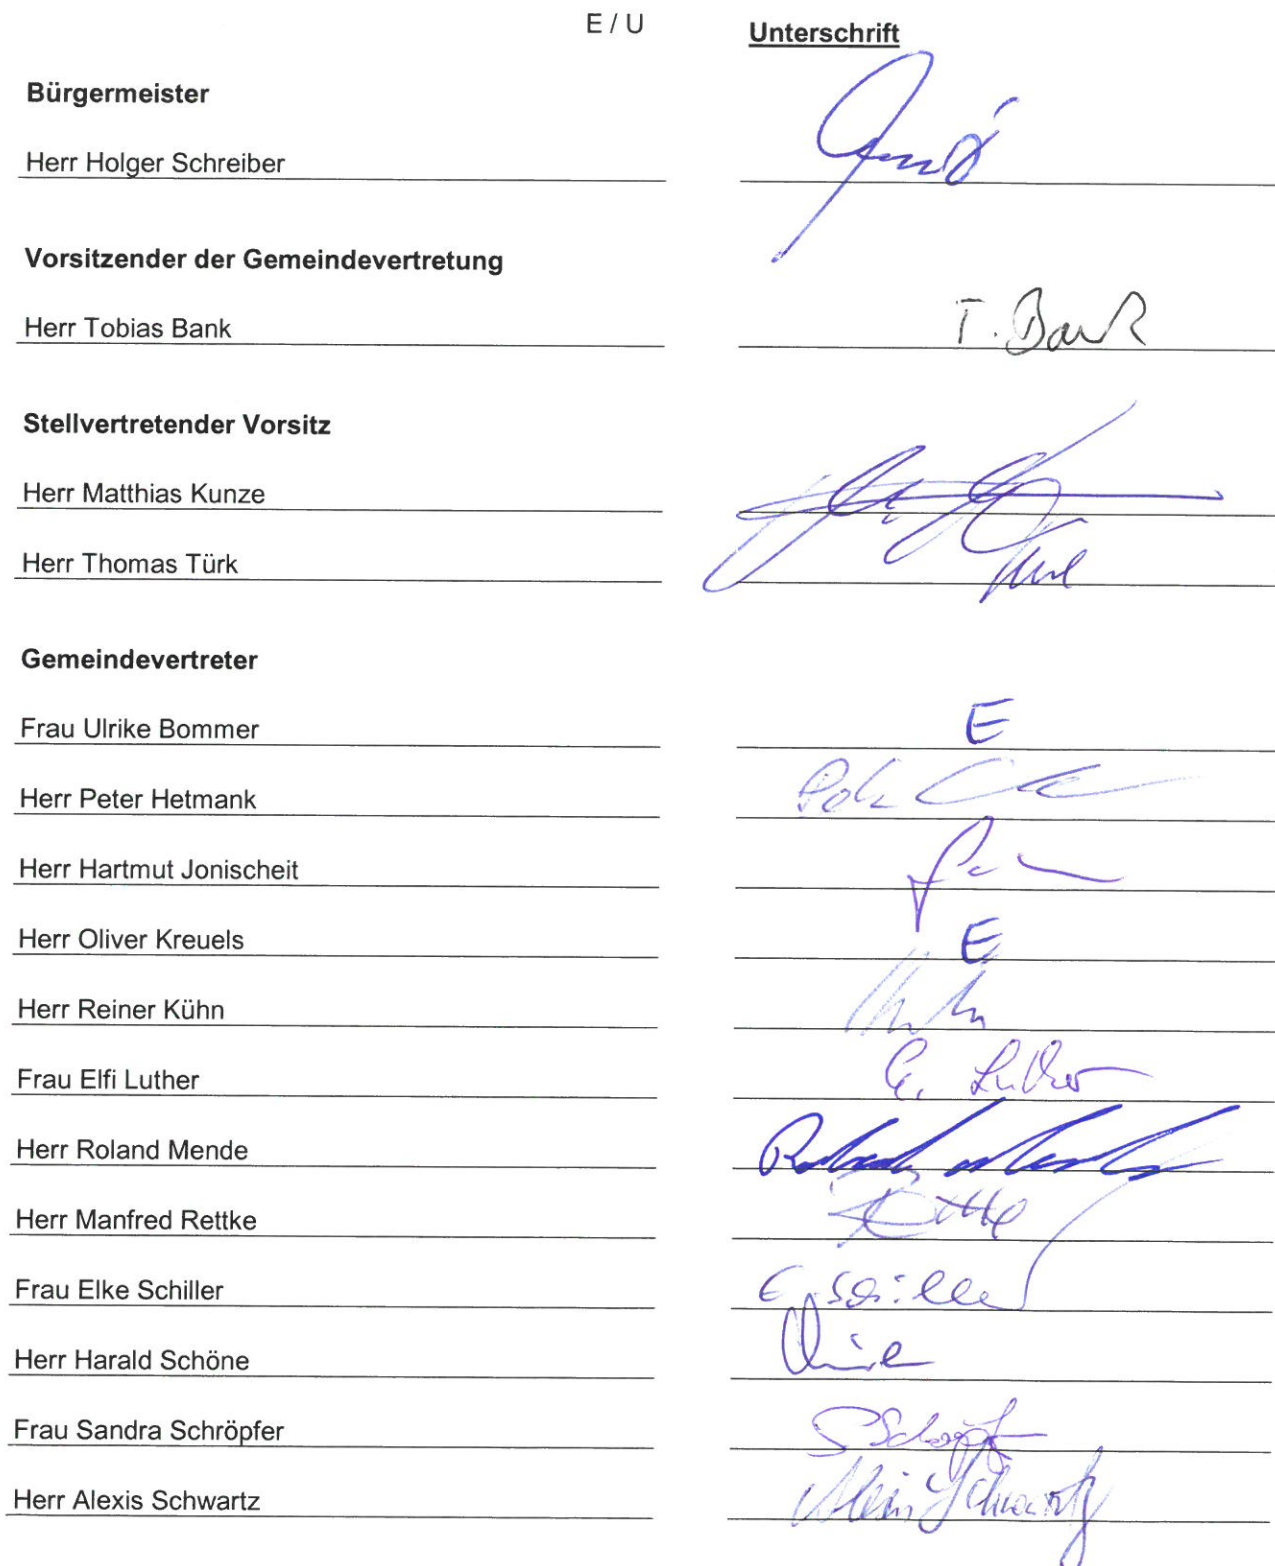 E / U Unterschrift
Bürgermeister
Herr Holger Schreiber
Vorsitzender der Gemeindevertretung
Herr Tobias Bank T. Bank
Stellvertretender Vorsitz
Herr Matthias Kunze
Herr Thomas Türk
Gemeindevertreter
Frau Ulrike Bommer E
Herr Peter Hetmank
Herr Hartmut Jonischeit
Herr Oliver Kreuels E
Herr Reiner Kühn
Frau Elfi Luther E. Luther
Herr Roland Mende
Herr Manfred Rettke
Frau Elke Schiller E. Schiller
Herr Harald Schöne
Frau Sandra Schröpfer
Herr Alexis Schwartz Alexis Schwartz